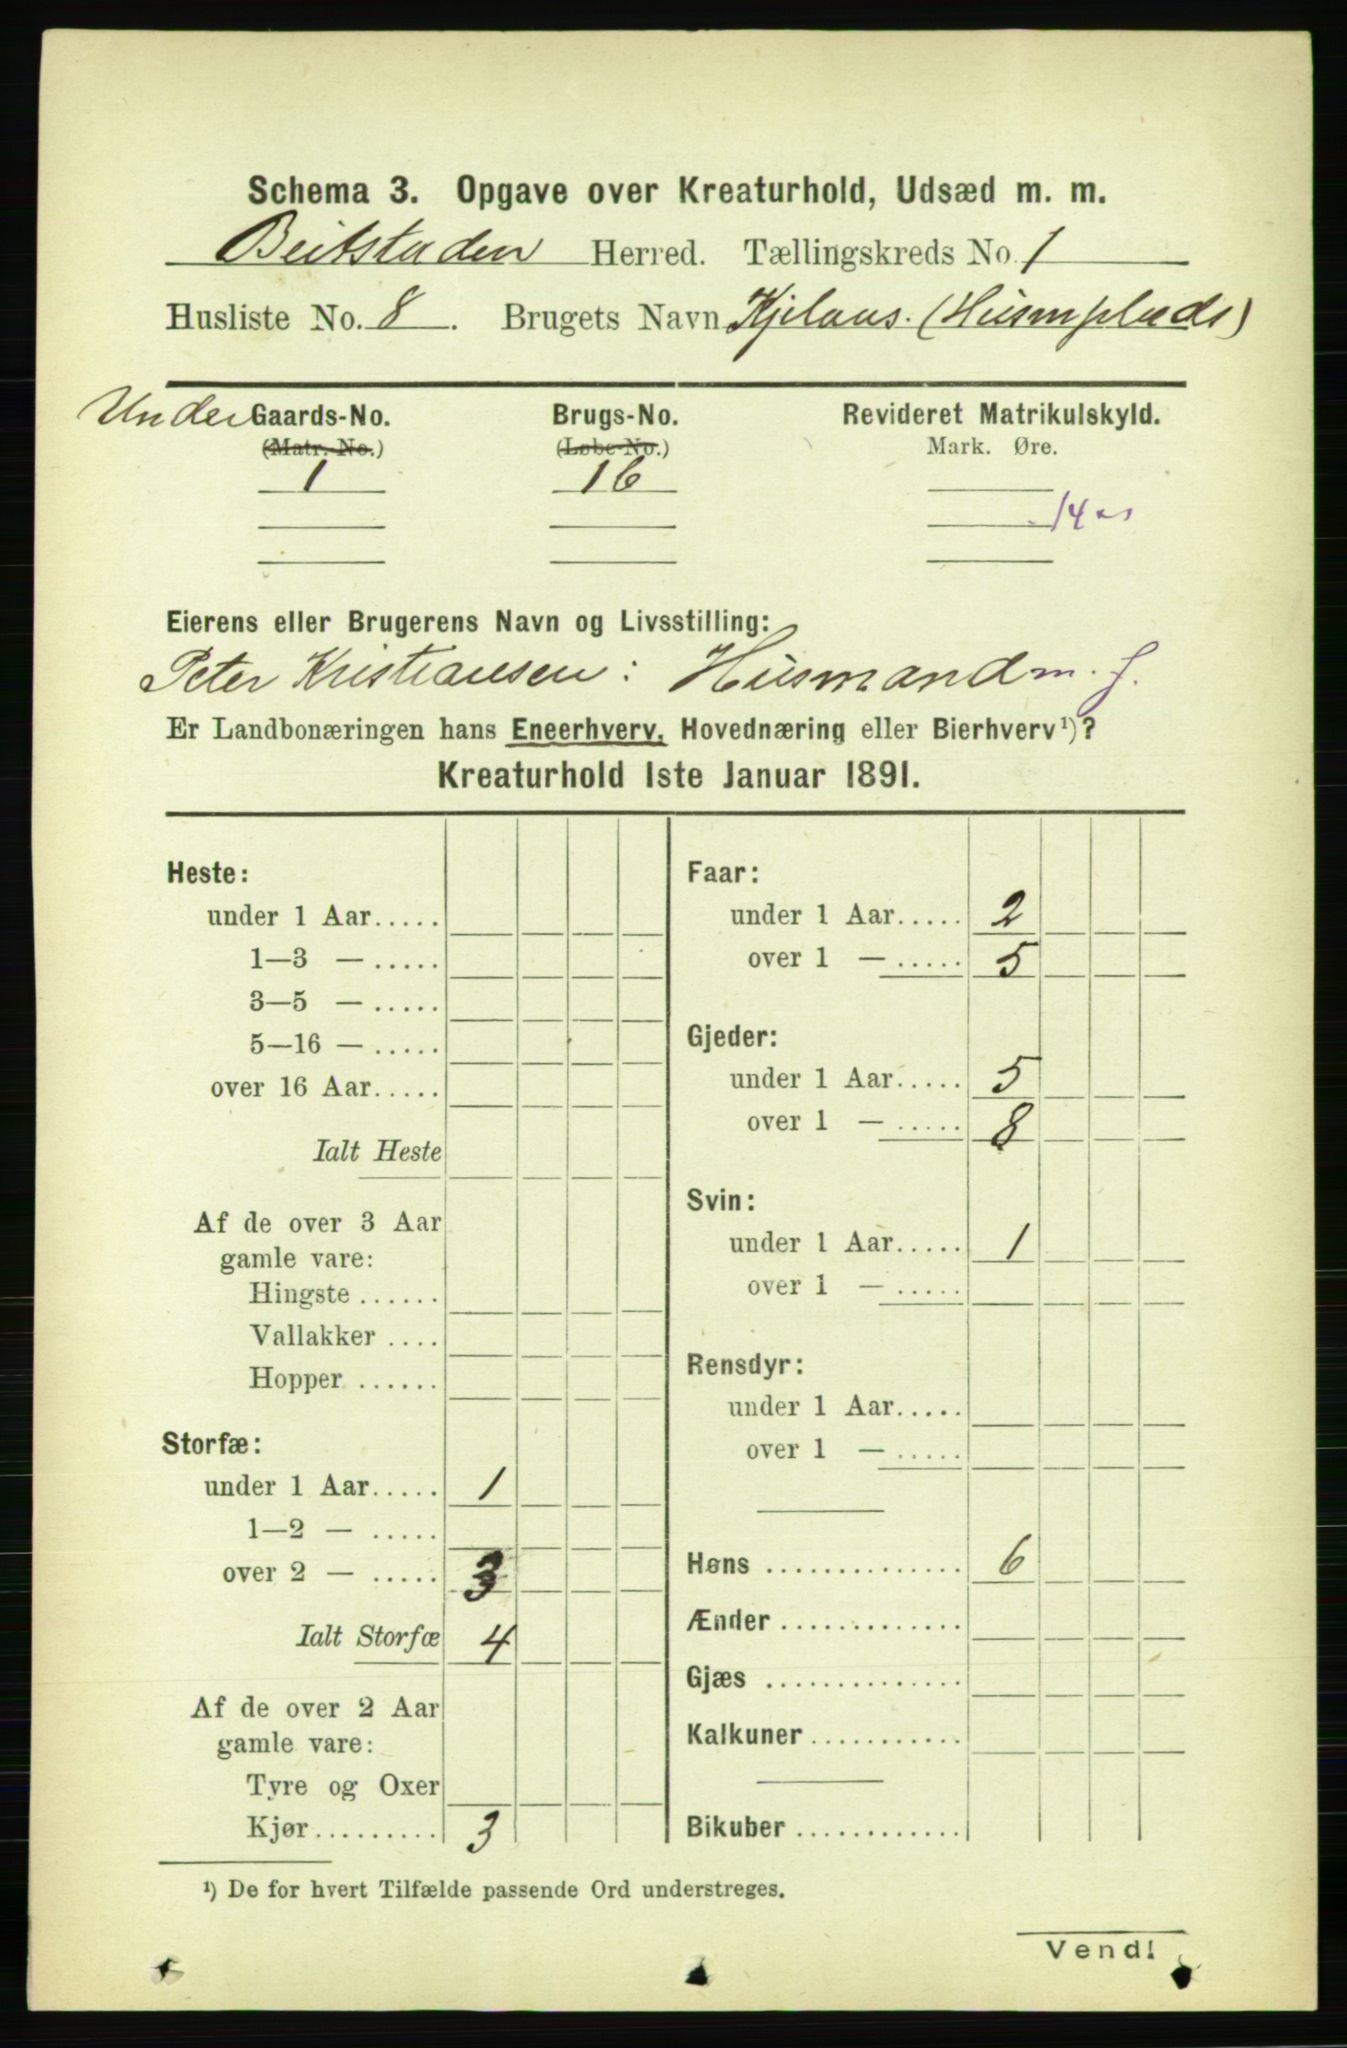 Schema 3. Opgave over Kreaturhold, Udsæd m. m.
Beitstaden Herred. Tællingskreds No. 1
Husliste No. 8. Brugets Navn Kjelaas. (Husmplads)
Under Gaards-No. Brugs-No. Revideret Matrikulskyld.
(Matr. No.) (Løbe-No.) Mark. Øre.
1 16
14
Eierens eller Brugerens Navn og Livsstilling:
Peter Kristiansen: Husmand m. J.
Er Landbonæringen hans Eneerhverv, Hovednæring eller Bierhverv¹)?
Kreaturhold 1ste Januar 1891.
Heste:
under 1 Aar.....
1—3 — .....
3—5 — .....
5—16 — .....
over 16 Aar.....
Ialt Heste
Af de over 3 Aar
gamle vare:
Hingste ......
Vallakker ....
Hopper ......
Storfæ:
under 1 Aar..... 1
1—2 — .....
over 2 — ..... 3
Ialt Storfæ 4
Af de over 2 Aar
gamle vare:
Tyre og Oxer
Kjør......... 3
Faar:
under 1 Aar..... 2
over 1 — ..... 5
Gjeder:
under 1 Aar..... 5
over 1 — ..... 8
Svin:
under 1 Aar..... 1
over 1 — .....
Rensdyr:
under 1 Aar.....
over 1 — .....
Høns .............. 6
Ænder .............
Gjæs ..............
Kalkuner ...........
Bikuber ............
¹) De for hvert Tilfælde passende Ord understreges.
Vend!